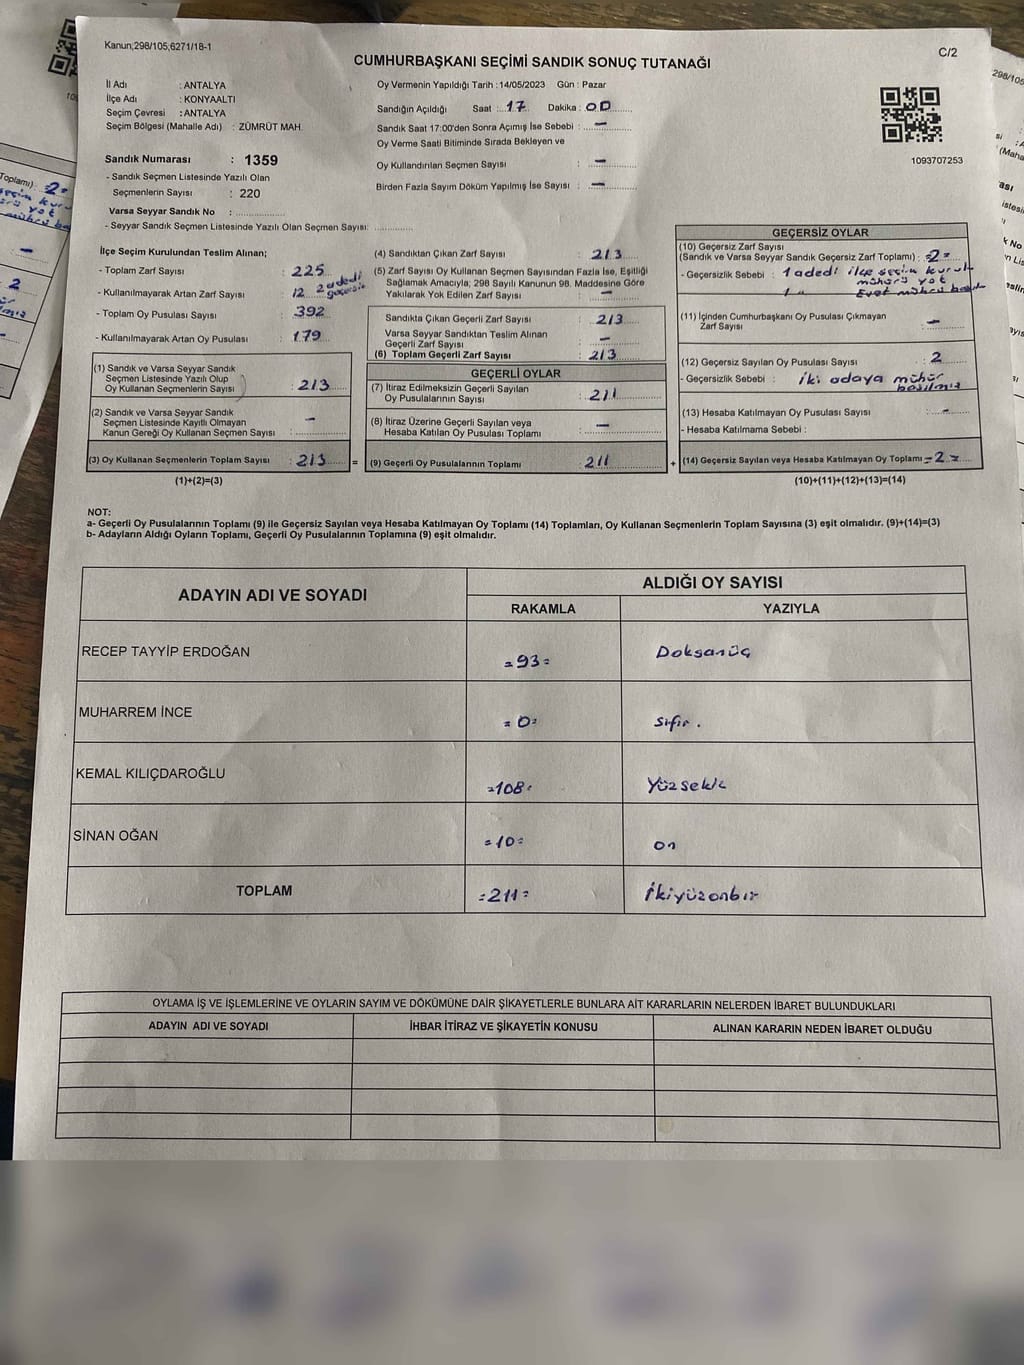 Kanun;298/105;6271/18-1
C/2
CUMHURBAŞKANI SEÇİMİ SANDIK SONUÇ TUTANAĞI
İl Adı : ANTALYA
İlçe Adı : KONYAALTI
Seçim Çevresi : ANTALYA
Seçim Bölgesi (Mahalle Adı) : ZÜMRÜT MAH.
Oy Vermenin Yapıldığı Tarih :14/05/2023 Gün : Pazar
Sandığın Açıldığı Saat : 17 Dakika : 00
Sandık Saat 17:00'den Sonra Açımış İse Sebebi : —
Oy Verme Saati Bitiminde Sırada Bekleyen ve
Oy Kullandırılan Seçmen Sayısı : —
Birden Fazla Sayım Döküm Yapılmış İse Sayısı : —
1093707253
Sandık Numarası : 1359
- Sandık Seçmen Listesinde Yazılı Olan
Seçmenlerin Sayısı : 220
Varsa Seyyar Sandık No :
- Seyyar Sandık Seçmen Listesinde Yazılı Olan Seçmen Sayısı:
İlçe Seçim Kurulundan Teslim Alınan;
- Toplam Zarf Sayısı : 225
- Kullanılmayarak Artan Zarf Sayısı : 12 2 adedi geçersiz
- Toplam Oy Pusulası Sayısı : 392
- Kullanılmayarak Artan Oy Pusulası : 179
(1) Sandık ve Varsa Seyyar Sandık
Seçmen Listesinde Yazılı Olup
Oy Kullanan Seçmenlerin Sayısı : 213
(2) Sandık ve Varsa Seyyar Sandık
Seçmen Listesinde Kayıtlı Olmayan
Kanun Gereği Oy Kullanan Seçmen Sayısı : —
(3) Oy Kullanan Seçmenlerin Toplam Sayısı : 213 =
(1)+(2)=(3)
(4) Sandıktan Çıkan Zarf Sayısı : 213
(5) Zarf Sayısı Oy Kullanan Seçmen Sayısından Fazla İse, Eşitliği
Sağlamak Amacıyla; 298 Sayılı Kanunun 98. Maddesine Göre
Yakılarak Yok Edilen Zarf Sayısı : —
Sandıkta Çıkan Geçerli Zarf Sayısı : 213
Varsa Seyyar Sandıktan Teslim Alınan
Geçerli Zarf Sayısı : —
(6) Toplam Geçerli Zarf Sayısı : 213
GEÇERLİ OYLAR
(7) İtiraz Edilmeksizin Geçerli Sayılan
Oy Pusulalarının Sayısı : 211
(8) İtiraz Üzerine Geçerli Sayılan veya
Hesaba Katılan Oy Pusulası Toplamı : —
(9) Geçerli Oy Pusulalarının Toplamı : 211 +
GEÇERSİZ OYLAR
(10) Geçersiz Zarf Sayısı
(Sandık ve Varsa Seyyar Sandık Geçersiz Zarf Toplamı) : =2=
- Geçersizlik Sebebi : 1 adedi ilçe seçim kurulu
mührü yok
1 " Evet mührü basılı
(11) İçinden Cumhurbaşkanı Oy Pusulası Çıkmayan
Zarf Sayısı : —
(12) Geçersiz Sayılan Oy Pusulası Sayısı : 2
- Geçersizlik Sebebi : iki adaya mühür
basılmış
(13) Hesaba Katılmayan Oy Pusulası Sayısı : —
- Hesaba Katılmama Sebebi :
(14) Geçersiz Sayılan veya Hesaba Katılmayan Oy Toplamı : =2=
(10)+(11)+(12)+(13)=(14)
NOT:
a- Geçerli Oy Pusulalarının Toplamı (9) ile Geçersiz Sayılan veya Hesaba Katılmayan Oy Toplamı (14) Toplamları, Oy Kullanan Seçmenlerin Toplam Sayısına (3) eşit olmalıdır. (9)+(14)=(3)
b- Adayların Aldığı Oyların Toplamı, Geçerli Oy Pusulalarının Toplamına (9) eşit olmalıdır.
ADAYIN ADI VE SOYADI
ALDIĞI OY SAYISI
RAKAMLA YAZIYLA
RECEP TAYYİP ERDOĞAN =93= Doksanüç
MUHARREM İNCE =0= sıfır.
KEMAL KILIÇDAROĞLU =108= Yüzsekiz
SİNAN OĞAN =10= on
TOPLAM =211= İkiyüzonbir
OYLAMA İŞ VE İŞLEMLERİNE VE OYLARIN SAYIM VE DÖKÜMÜNE DAİR ŞİKAYETLERLE BUNLARA AİT KARARLARIN NELERDEN İBARET BULUNDUKLARI
ADAYIN ADI VE SOYADI İHBAR İTİRAZ VE ŞİKAYETİN KONUSU ALINAN KARARIN NEDEN İBARET OLDUĞU